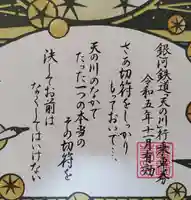 銀河鉄道天の川行乗車券
令和五年十二月有効
さあ切符をしっかり
もっておいで…
天の川のなかで
たった一つの本当の
その切符を
決しておまえは
なくしてはいけない